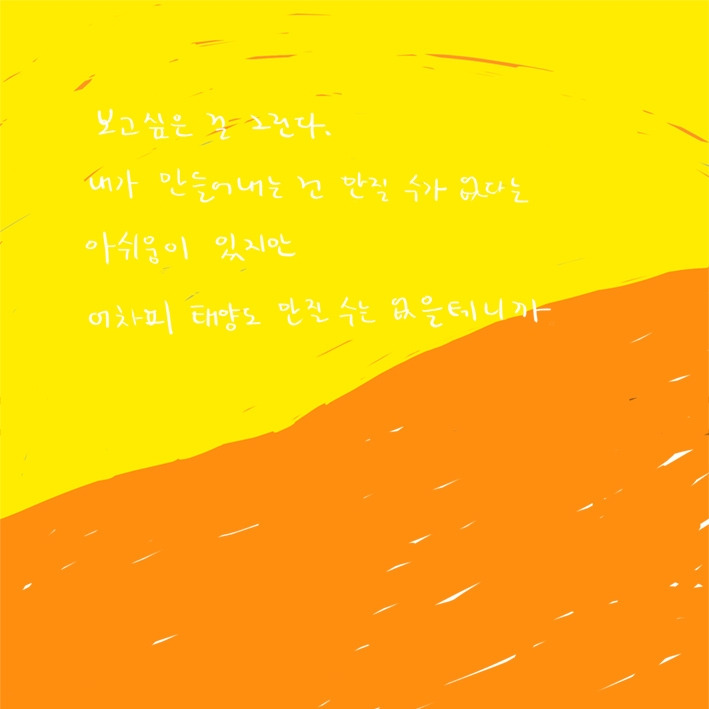 보고싶은 걸 그린다.
내가 만들어내는 건 만질 수가 없다는
아쉬움이 있지만
어차피 태양도 만질 수는 없을테니까